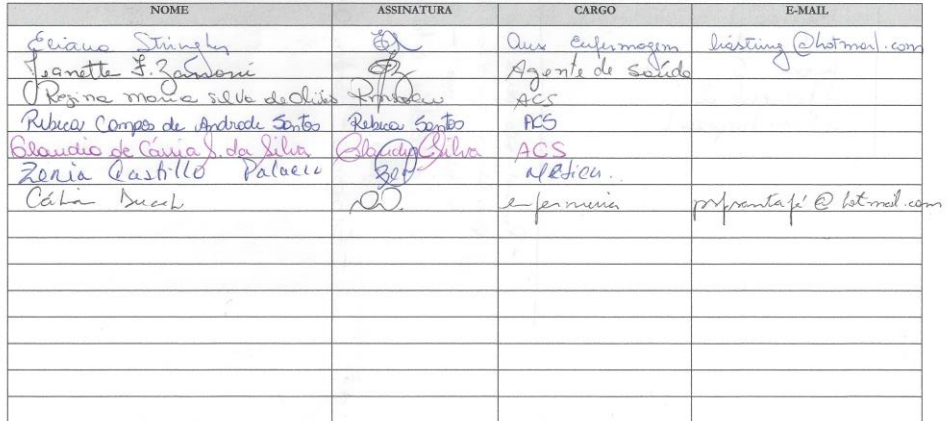 NOME ASSINATURA CARGO E-MAIL
Eliana Aux Enfermagem liastring@hotmail.com
Jeanette F. Zandoni Agente de Saúde
Regina maria silva de ACS
Rebeca Campos de Andrade Santos Rebeca Santos ACS
Claudia de Cássia S. da Silva Claudia Silva ACS
Zenia Castillo Palacio
Cátia enfermeira @hotmail.com